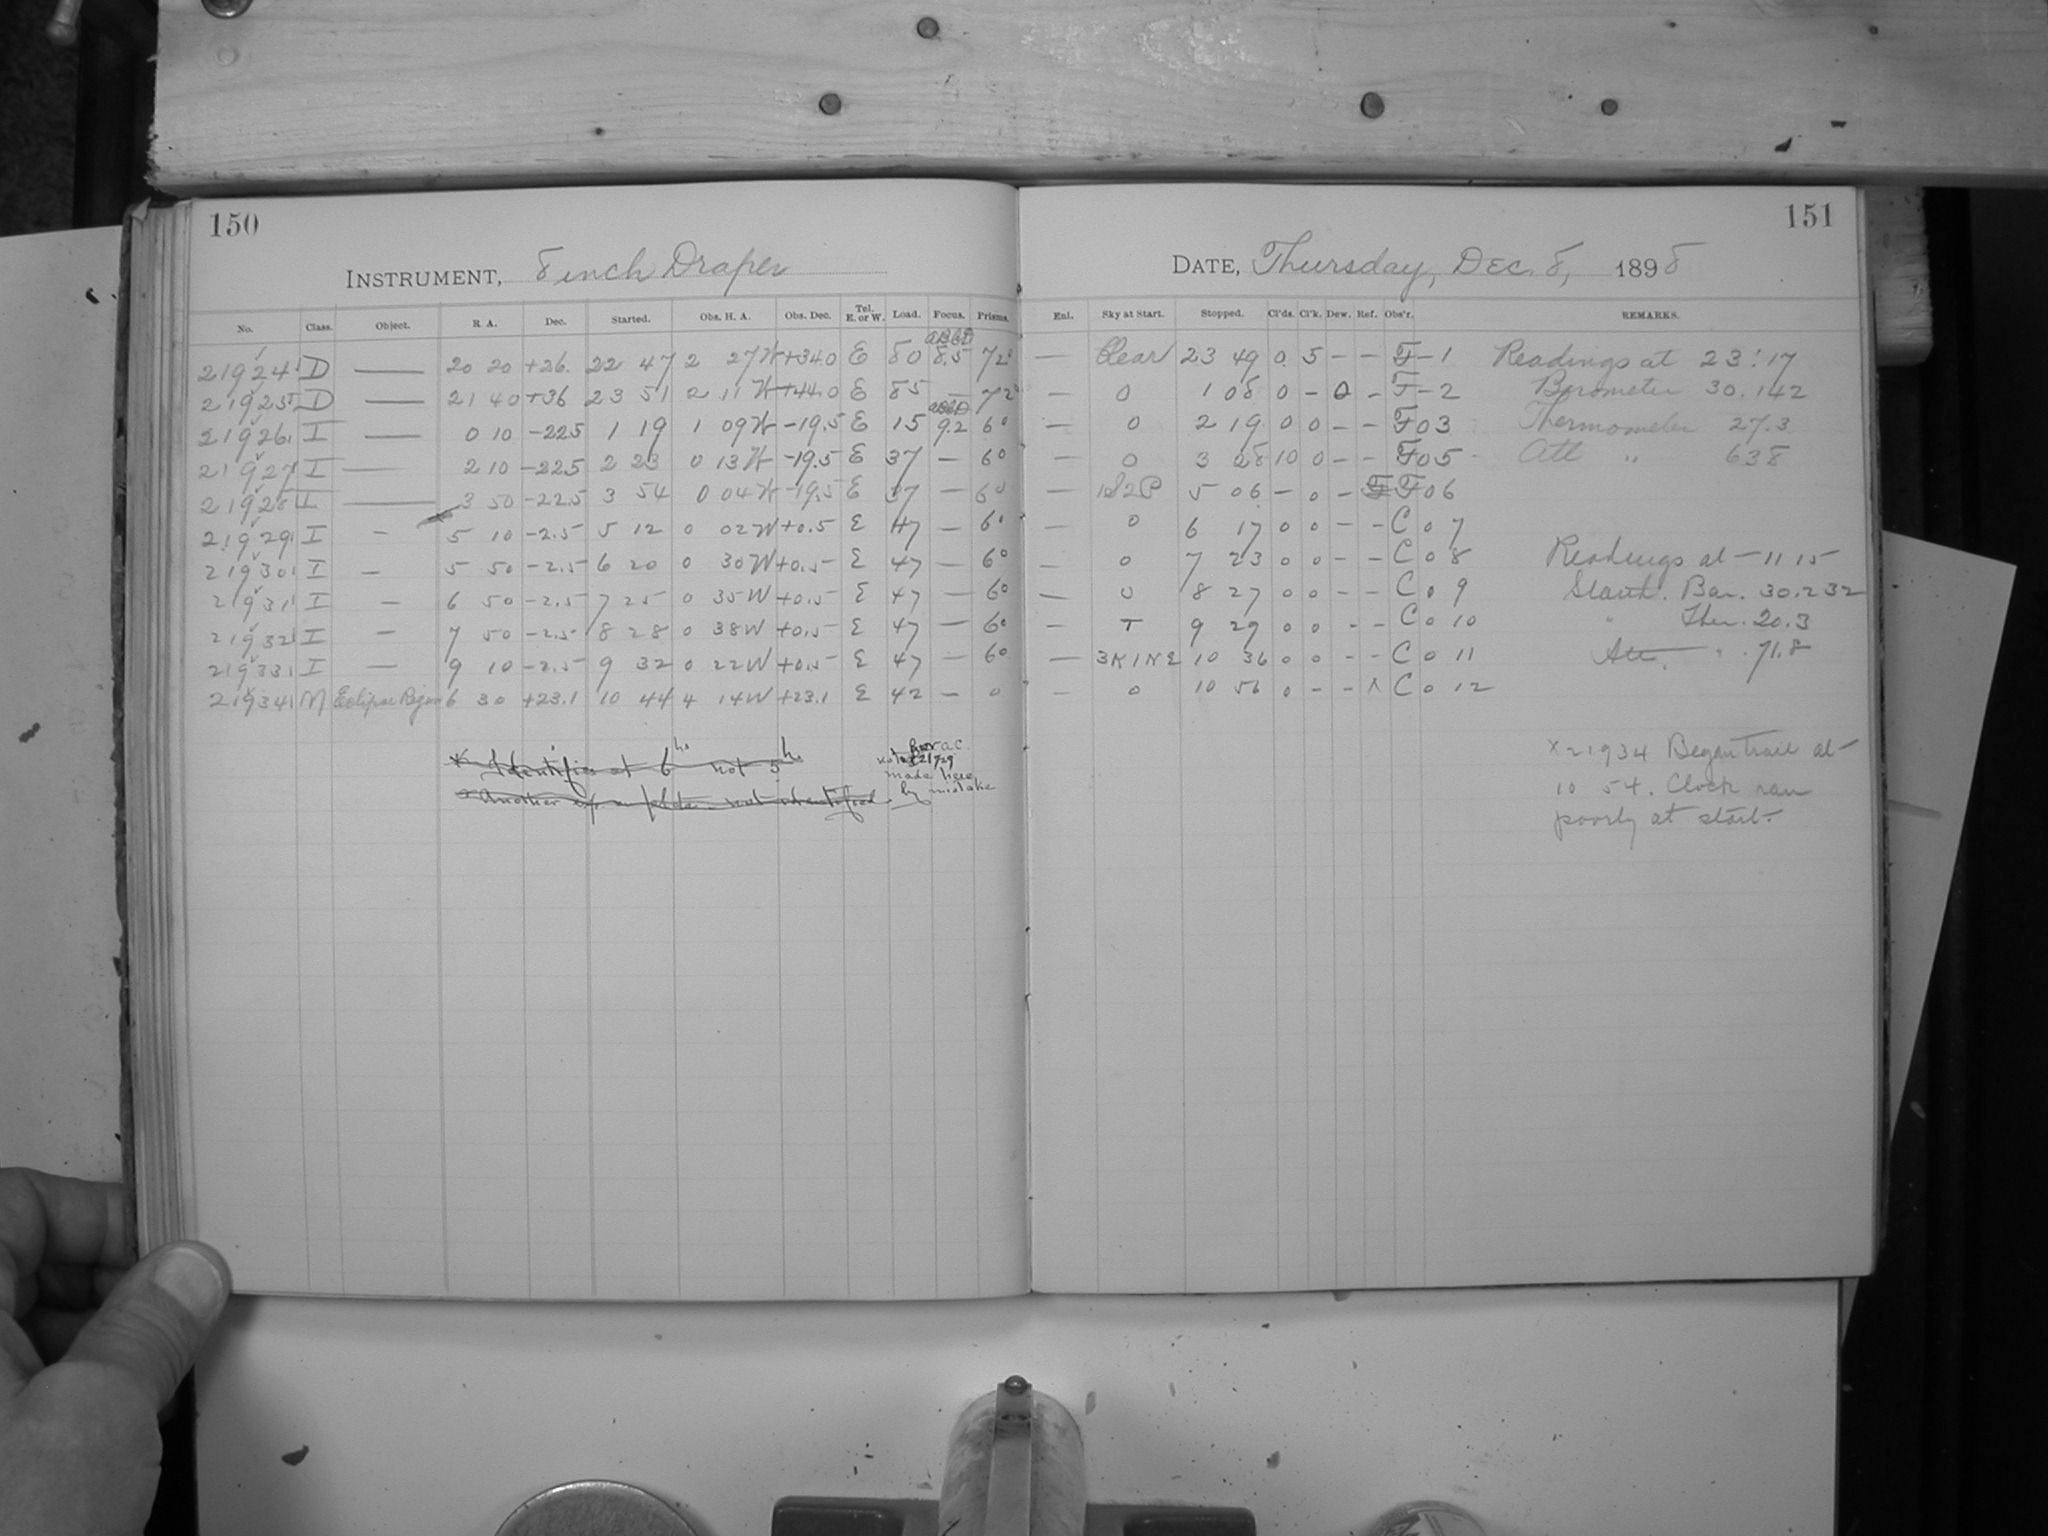 150
INSTRUMENT, 8 inch Draper
No. Class. Object. R. A. Dec. Started. Obs. H. A. Obs. Dec. Tel. E. or W. Load. Focus. Prisms.
21924 D — 20 20 +26. 22 47 2 27W +34.0 E 80 8.5 72°
21925 D — 21 40 +36 23 51 2 11W +44.0 E 85 — 72°
21926 I — 0 10 -22.5 1 19 1 09W -19.5 E 15 9.2 60
21927 I — 2 10 -22.5 2 23 0 13W -19.5 E 37 — 60
21928 I — 3 50 -22.5 3 54 0 04W -19.5 E 37 — 60
21929 I — 5 10 -2.5 5 12 0 02W +0.5 E 47 — 60
21930 I — 5 50 -2.5 6 20 0 30W +0.5 E 47 — 60
21931 I — 6 50 -2.5 7 25 0 35W +0.5 E 47 — 60
21932 I — 7 50 -2.5 8 28 0 38W +0.5 E 47 — 60
21933 I — 9 10 -2.5 9 32 0 22W +0.5 E 47 — 60
21934 M Eclipse Region 6 30 +23.1 10 44 4 14W +23.1 E 42 — 0
x Identifies at 6 hs not 5 h.
Another exp. on plate not identified.
21929
made here
by mistake
151
DATE, Thursday, Dec. 8, 1898
Enl. Sky at Start. Stopped. Cl'ds. Cl'k. Dew. Ref. Obs'r. REMARKS.
— Clear 23 49 0 5 — — F-1 Readings at 23:17
— 0 1 08 0 — 0 — F-2 Barometer 30.142
— 0 2 19 0 0 — — F 0 3 Thermometer 27.3
— 0 3 28 10 0 — — F 0 5 Att " 63.8
— 5 06 — 0 — F F 0 6
— 0 6 17 0 0 — — C 0 7
— 0 7 23 0 0 — — C 0 8 Readings at — 11 15
— 0 8 27 0 0 — — C 0 9 Stand. Bar. 30.232
— T 9 29 0 0 — — C 0 10 " Ther. 20.3
— 3K1NE 10 36 0 0 — — C 0 11 Att. " 71.8
— 0 10 56 0 — — x C 0 12
x 21934 Began trail at
10 54. Clock ran
poorly at start.